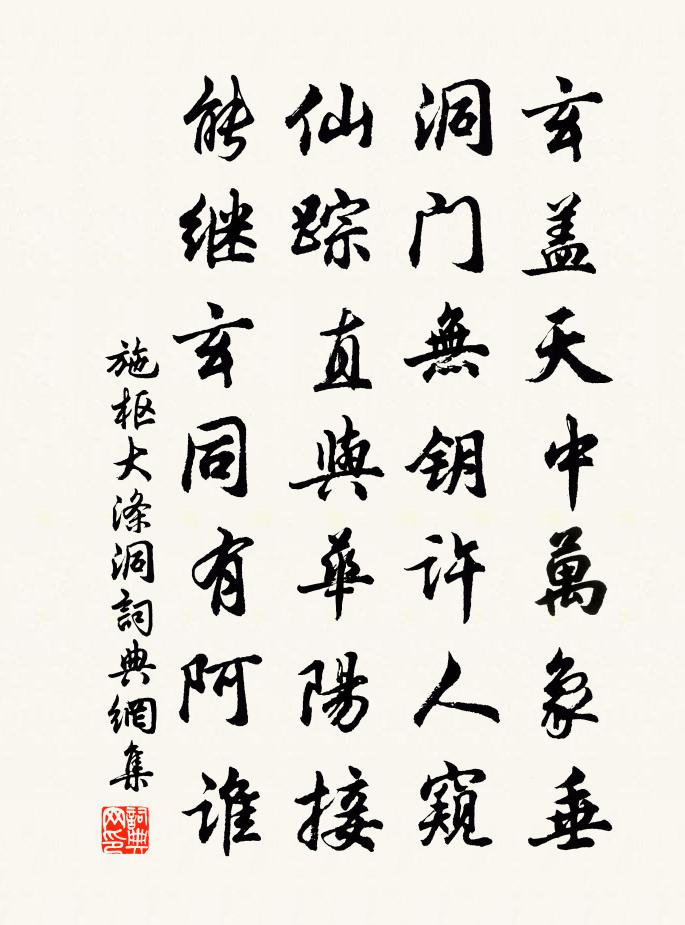 玄盖天中萬象垂
洞门無钥許人窺
仙踪直與華陽接
能继玄同有阿谁
施枢大涤洞詞典網集
詞典网印